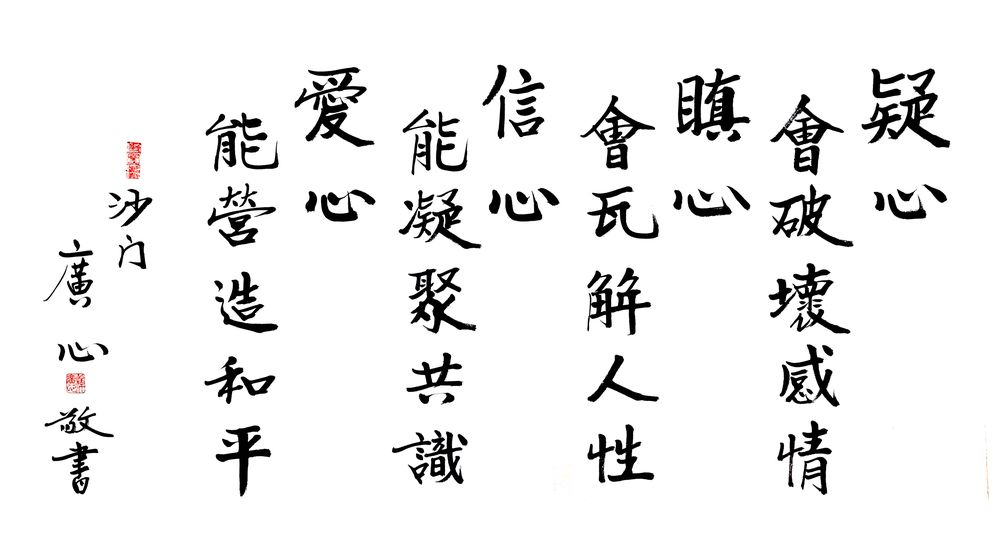 疑心
會破壞感情
瞋心
會瓦解人性
信心
能凝聚共識
愛心
能營造和平
沙门
廣心
敬書